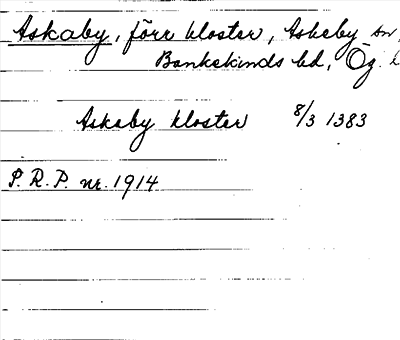 Askaby, förr kloster, Askeby sn,
Bankekinds hd, Ög. 
Askeby kloster 8/3 1383
P. R. P. nr. 1914